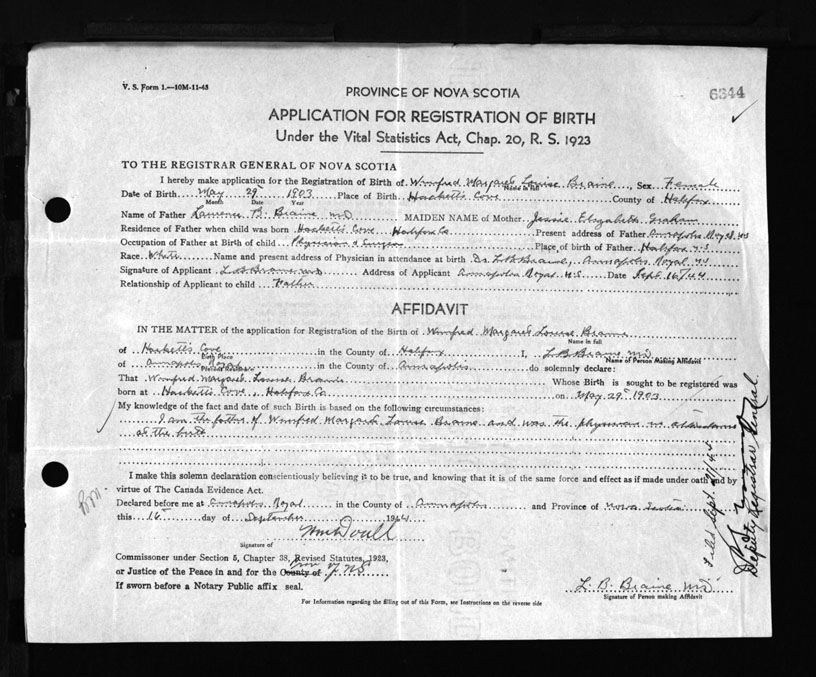 V. S. Form 1.—10M-11-43
PROVINCE OF NOVA SCOTIA
6344
APPLICATION FOR REGISTRATION OF BIRTH
Under the Vital Statistics Act, Chap. 20, R. S. 1923
TO THE REGISTRAR GENERAL OF NOVA SCOTIA
I hereby make application for the Registration of Birth of Winifred Margaret Louise Braine Sex Female
Name in full
Date of Birth May 29 1903 Place of Birth Hacketts Cove County of Halifax
Month Date Year
Name of Father Lawrence B. Braine MD MAIDEN NAME of Mother Jessie Elizabeth Graham
Residence of Father when child was born Hacketts Cove Halifax Co Present address of Father Annapolis Royal NS
Occupation of Father at Birth of child Physician & Surgeon Place of birth of Father Halifax NS
Race White Name and present address of Physician in attendance at birth Dr. L.B. Braine, Annapolis Royal NS
Signature of Applicant L B Braine MD Address of Applicant Annapolis Royal N.S Date Sept. 16/44
Relationship of Applicant to child Father
AFFIDAVIT
IN THE MATTER of the application for Registration of the Birth of Winifred Margaret Louise Braine
Name in full
of Hacketts Cove in the County of Halifax I, L B Braine MD
Birth Place Name of Person Making Affidavit
of Annapolis Royal in the County of Annapolis do solemnly declare:
Present Residence
That Winifred Margaret Louise Braine Whose Birth is sought to be registered was
born at Hacketts Cove, Halifax Co on May 29 1903
My knowledge of the fact and date of such Birth is based on the following circumstances:
I am the father of Winifred Margaret Louise Braine and was the physician in attendance
at the birth
I make this solemn declaration conscientiously believing it to be true, and knowing that it is of the same force and effect as if made under oath and by
virtue of The Canada Evidence Act.
Declared before me at Annapolis Royal in the County of Annapolis and Province of Nova Scotia
this 16 day of September 1944
Signature of
Commissioner under Section 5, Chapter 38, Revised Statutes, 1923,
or Justice of the Peace in and for the County of Prov of NS
If sworn before a Notary Public affix seal.
L. B. Braine MD
Signature of Person making Affidavit
For Information regarding the filling out of this Form, see Instructions on the reverse side
Filed Sept. 21/44
Deputy Registrar General